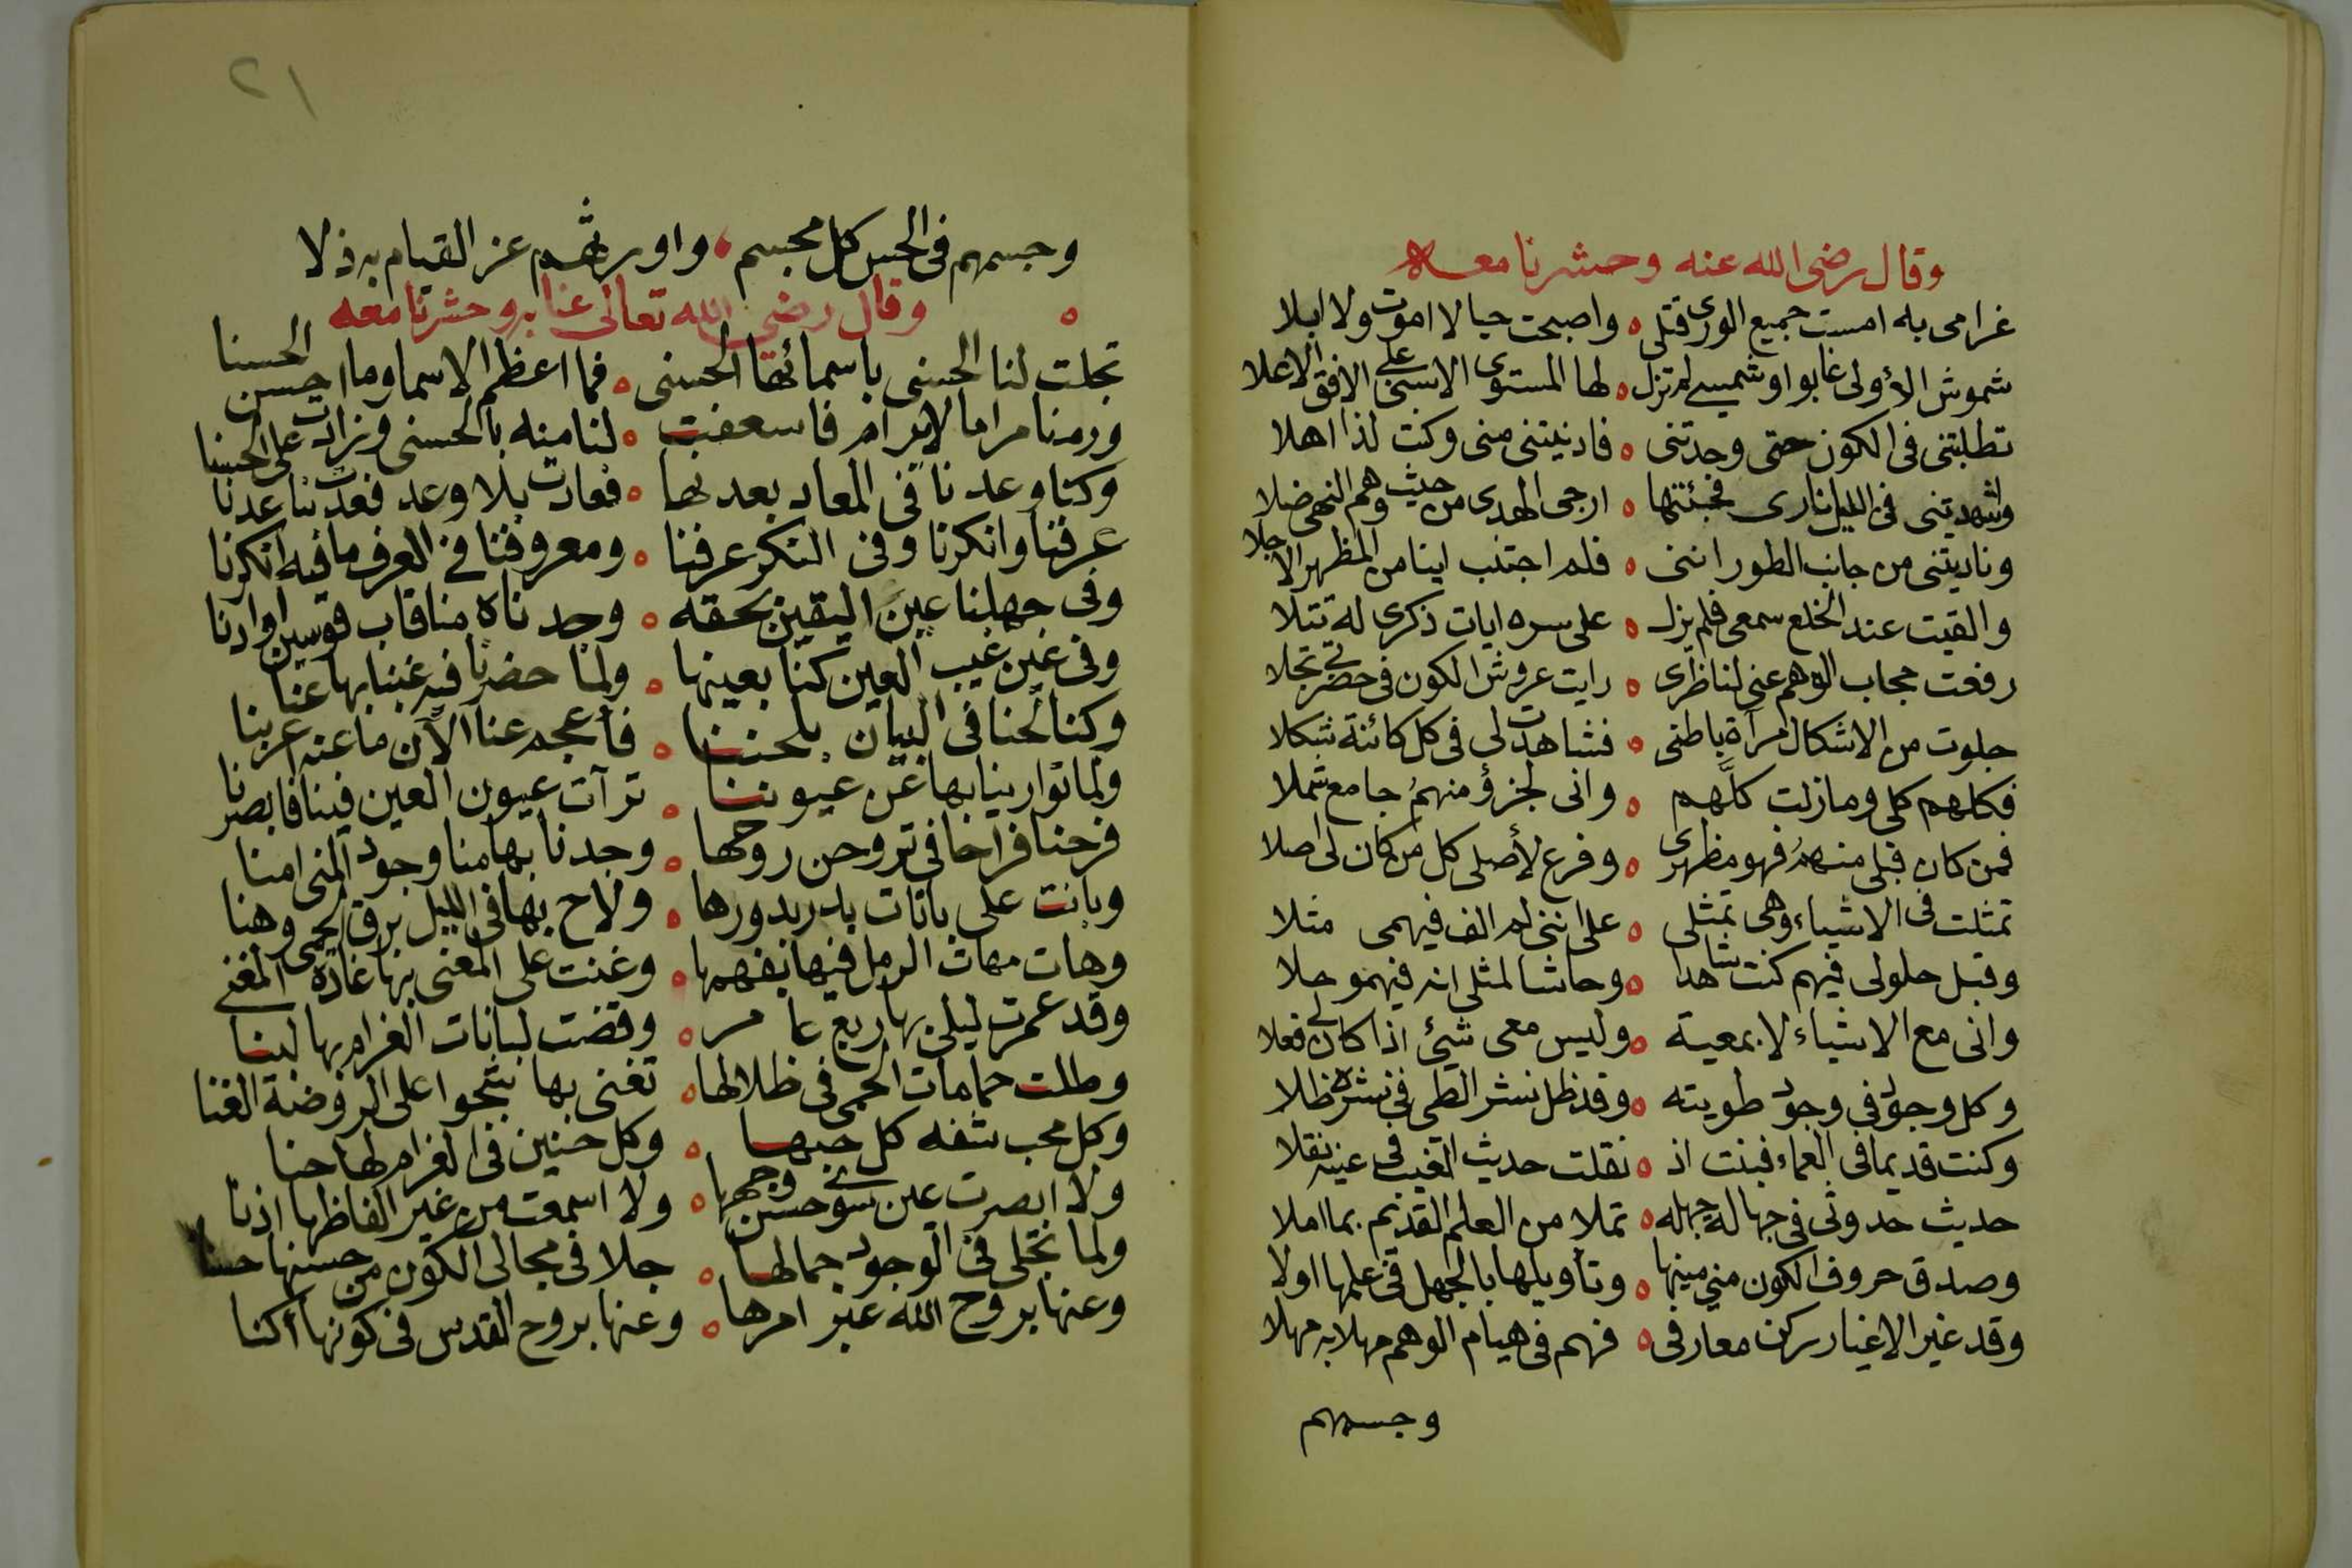 وقال رضى الله عنه وحشرنا معه
غرامى به امست جميع الورى قتلى ه واصبحت حيا لا اموت ولا ابلا
شموش الأولى غابوا وشمسى لم تزل ه لها المستوى الاسنى على الافق الاعلا
تطلبتنى فى الكون حتى وجدتنى ه فادنيتنى منى وكنت لذا اهلا
واشهدتنى فى الليل نارى فجئتها ه ارجى الهدى من حيث وهم النهى ضلا
وناديتنى من جانب الطور اننى ه فلم اجتنب اينا من المظهر الاجلا
والقيت عند الخلع سمعى فلم يزل ه على سره ايات ذكرى له تتلا
رفعت حجاب الوهم عنى لناظرى ه رايت عروش الكون فى حضرتى تجلا
جلوت من الاشكال مرآة باطنى ه فشاهدت لى فى كل كائنة شكلا
فكلهم كلى ومازلت كلهم ه وانى لجزؤ منهم جامع شملا
فمن كان قبلى منهم فهو مظهرى ه وفرع لأصلى كل من كان لى اصلا
تمثلت فى الاشياء وهى تمثلى ه على اننى لم الف فيهمى مثلا
وقبل حلولى فيهم كنت شاهدا ه وحاشا لمثلى انه فيهمو حلا
وانى مع الاشياء لا بمعية ه وليس معى شيئ اذا كان لى فعلا
وكل وجود فى وجود طويته ه وقد ظل نشر الطى فى نشره ظلا
وكنت قديما فى العماء فبنت اذ ه نقلت حديث الغيب فى عينه نقلا
حديث حدوثى فى جهالة جهله ه تملا من العلم القديم بما املا
وصدق حروف الكون منى مينها ه وتأويلها بالجهل فى علمها اولا
وقد غير الاغيار سركن معارفى ه فهم فى هيام الوهم مهلا به مهلا
وجسمهم
٢١
وجسمهم فى الحس كل مجسم ، واورثهم عز القيام به ذلا
ه وقال رضى الله تعالى عنا به وحشرنا معه
تجلت لنا الحسنى باسمائها الحسنى ه فما اعظم الاسما وما احسن الحسنا
ورمنا مراما لا يرام فاسعفت ه لنا منه بالحسنى وزادت على الحسنا
وكنا وعدنا فى المعاد بعد بها ه فعادت بلا وعد فعدنا عدنا
عرفنا وانكرنا وفى النكر عرفنا ه ومعروفنا فى العرف ما فيه انكرنا
وفى جهلنا عين اليقين بحقه ه وجدناه منا قاب قوسين او ادنا
وفى عين غيب العين كنا بعينها ه ولما حضرنا فيه غبنا بها عنا
وكنا لحنا فى البيان بلحننا ه فأعجم عنا الآن ما عنه اعربنا
ولما توارينا بها عن عيوننا ه ترآت عيون العين فينا فابصرنا
فرحنا فراحا فى تروحن روحها ه وجدنا بها منا وجود المنى امنا
وبانت على بانات بدر بدورها ه ولاح بها فى الليل برق الحمى وهنا
وهات مهات الرمل فيها بفهمها ه وغنت على المغنى بها غادة المغنى
وقد عمرت ليلى بها ربع عامر ه وقضت لبانات الغرام بها لبنا
وظلت حمامات الحمى فى ظلالها ه تغنى بها شجوا على الروضة الغنا
وكل محب شفه كل حبها ه وكل حنين فى الغرام لها حنا
ولا ابصرت عين سوى حسن وجهها ه ولا اسمعت من غير الفاظها اذنا
ولما تجلى فى الوجود جمالها ه جلا فى مجالى الكون من حسنها حسنا
وعنها بروح الله عبر امرها ه وعنها بروح القدس فى كونها اكنا